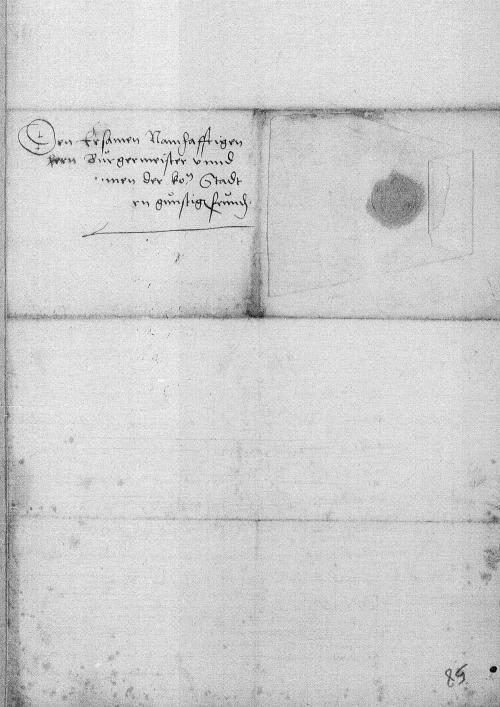 Den Ersamen Namhafftigen
hern Burgermeister vnnd
nnen der ko Stadt
en gunstig frund
85